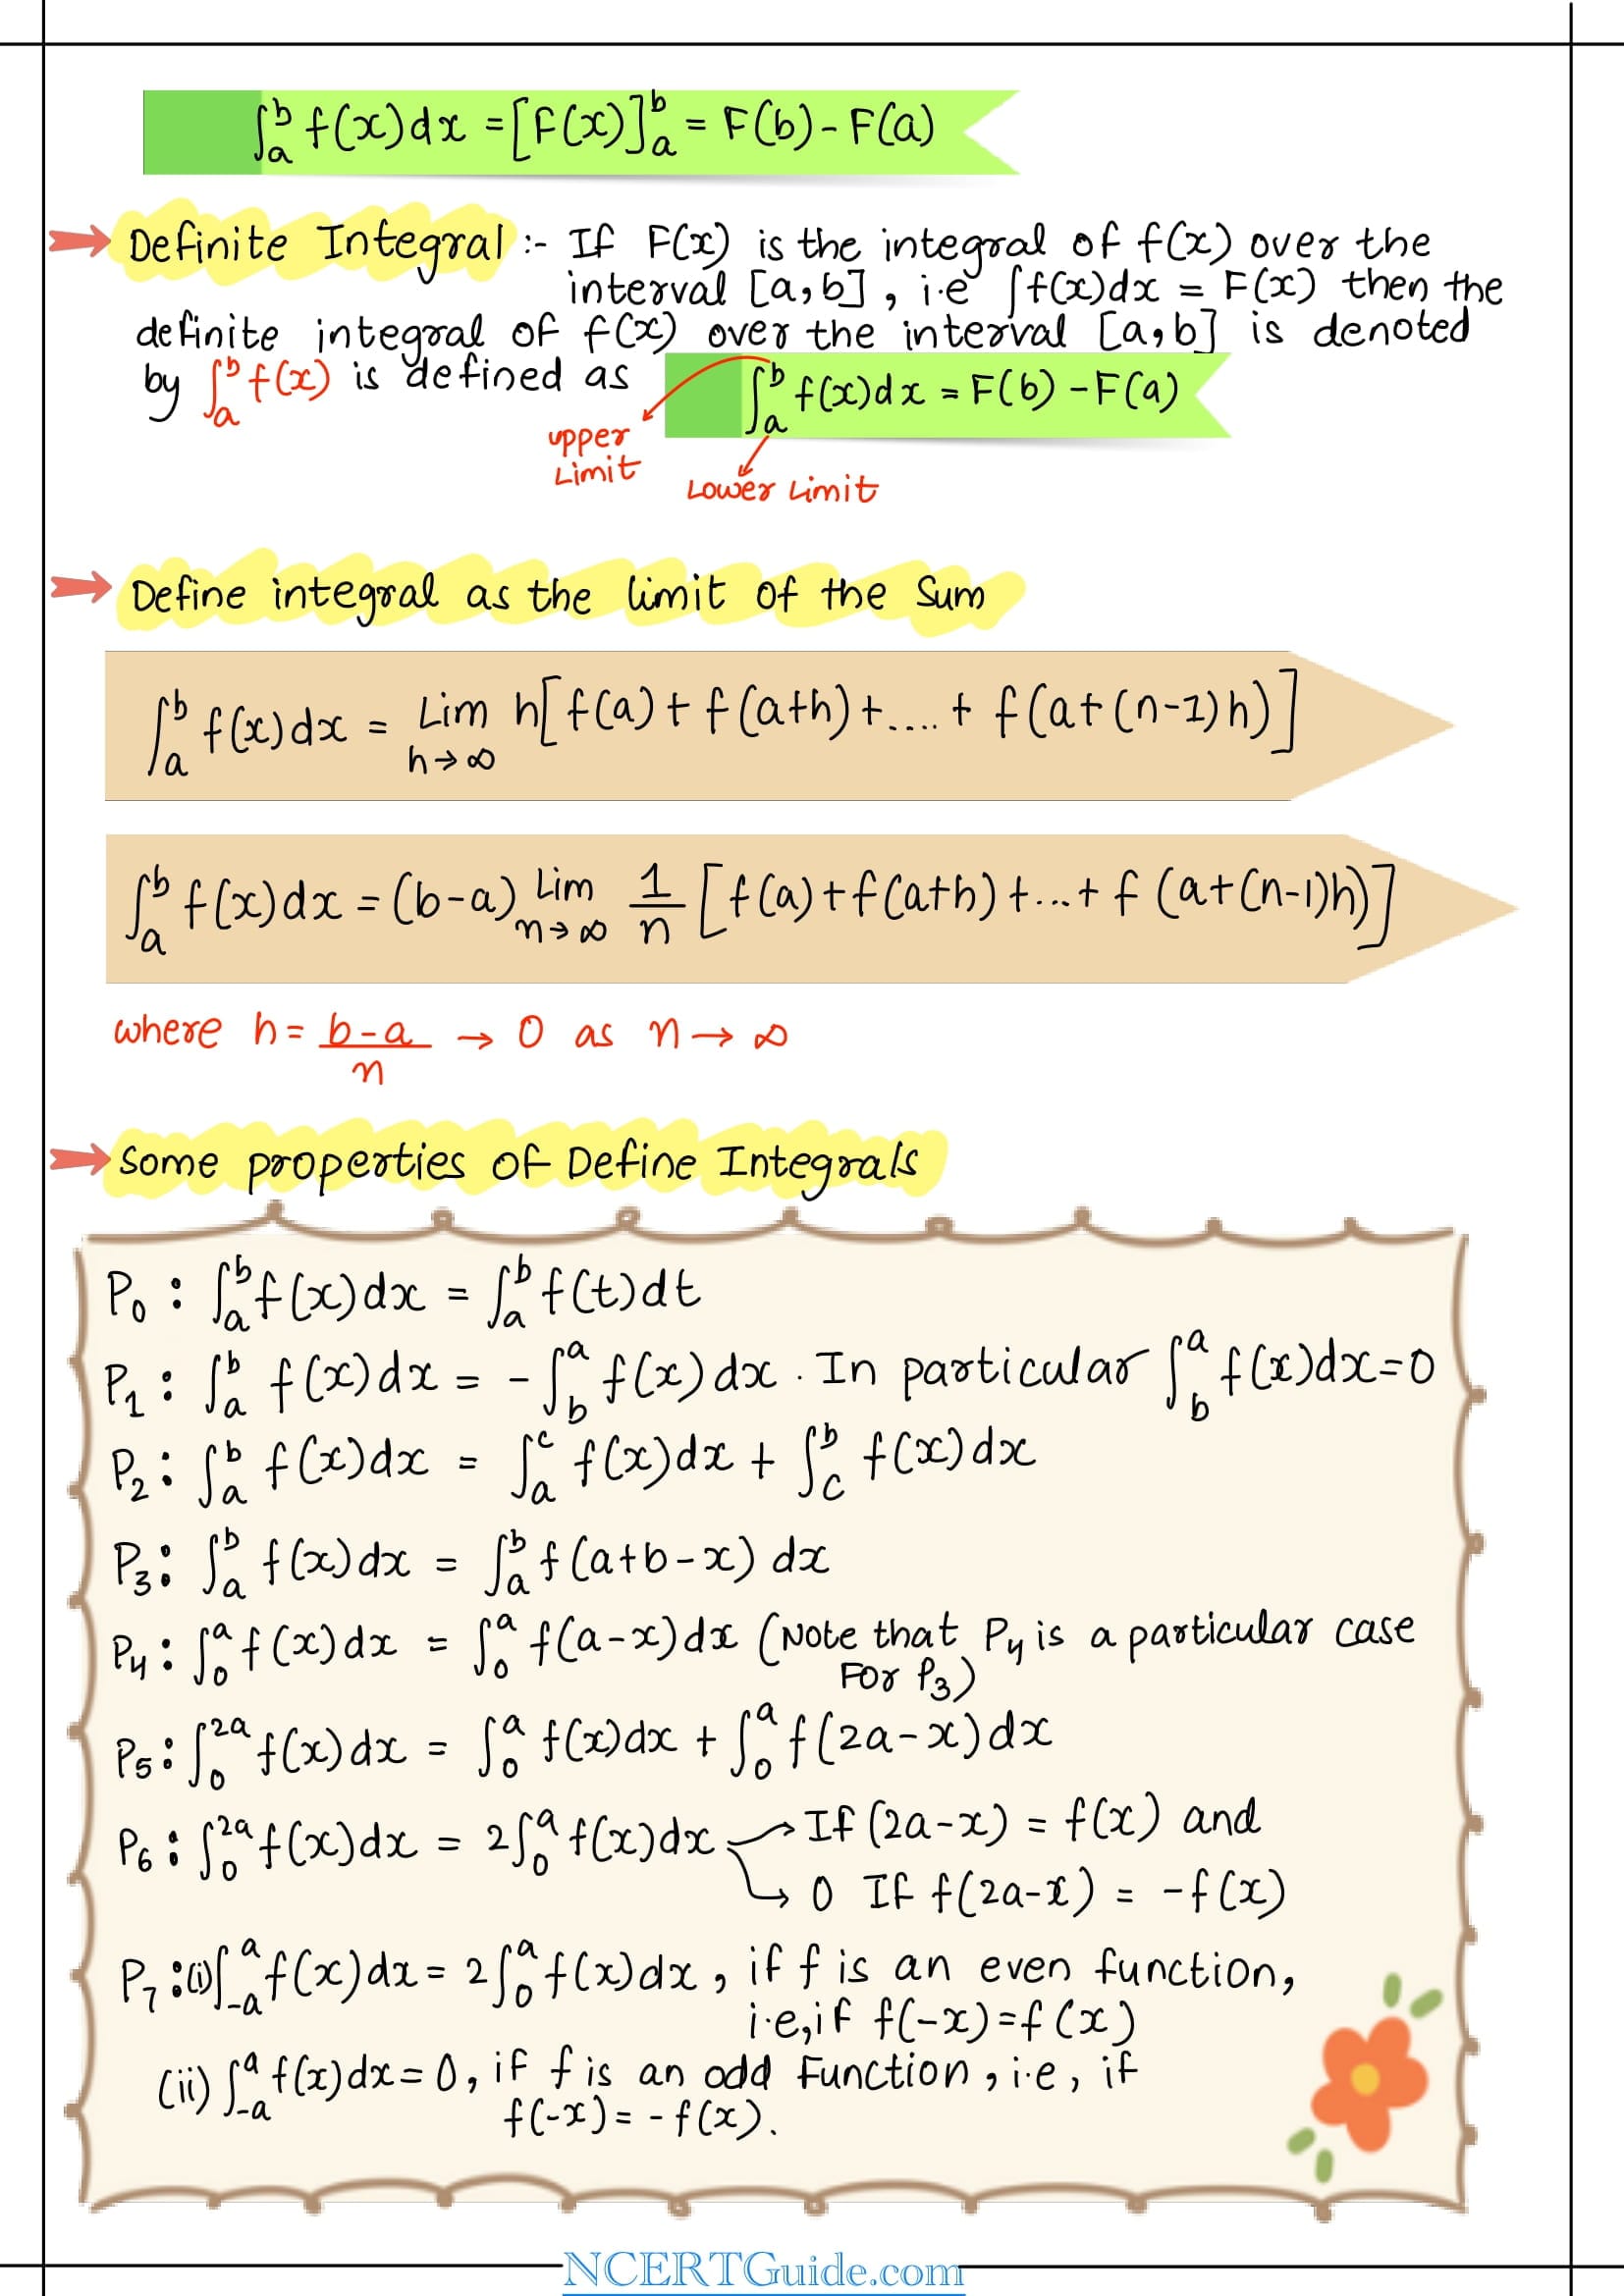 ∫_a^b f(x)dx = [F(x)]_a^b = F(b) - F(a)
Definite Integral :- If F(x) is the integral of f(x) over the
interval [a,b], i.e ∫f(x)dx = F(x) then the
definite integral of f(x) over the interval [a,b] is denoted
by ∫_a^b f(x) is defined as ∫_a^b f(x)dx = F(b) - F(a)
upper
Limit
Lower Limit
Define integral as the limit of the Sum
∫_a^b f(x)dx = Lim_{h→∞} h[f(a) + f(a+h) + .... + f(a+(n-1)h)]
∫_a^b f(x)dx = (b-a) Lim_{n→∞} 1/n [f(a) + f(a+h) + ... + f (a+(n-1)h)]
where h = b-a/n → 0 as n → ∞
Some properties of Define Integrals
P₀ : ∫_a^b f(x)dx = ∫_a^b f(t)dt
P₁ : ∫_a^b f(x)dx = -∫_b^a f(x)dx . In particular ∫_b^a f(x)dx=0
P₂ : ∫_a^b f(x)dx = ∫_a^c f(x)dx + ∫_c^b f(x)dx
P₃ : ∫_a^b f(x)dx = ∫_a^b f(a+b-x) dx
P₄ : ∫_0^a f(x)dx = ∫_0^a f(a-x)dx (Note that P₄ is a particular case
For P₃)
P₅ : ∫_0^2a f(x)dx = ∫_0^a f(x)dx + ∫_0^a f(2a-x)dx
P₆ : ∫_0^2a f(x)dx = 2∫_0^a f(x)dx → If (2a-x) = f(x) and
→ 0 If f(2a-x) = -f(x)
P₇ : (i) ∫_-a^a f(x)dx = 2∫_0^a f(x)dx, if f is an even function,
i.e, if f(-x)=f(x)
(ii) ∫_-a^a f(x)dx = 0, if f is an odd Function, i.e, if
f(-x) = -f(x).
NCERTGuide.com